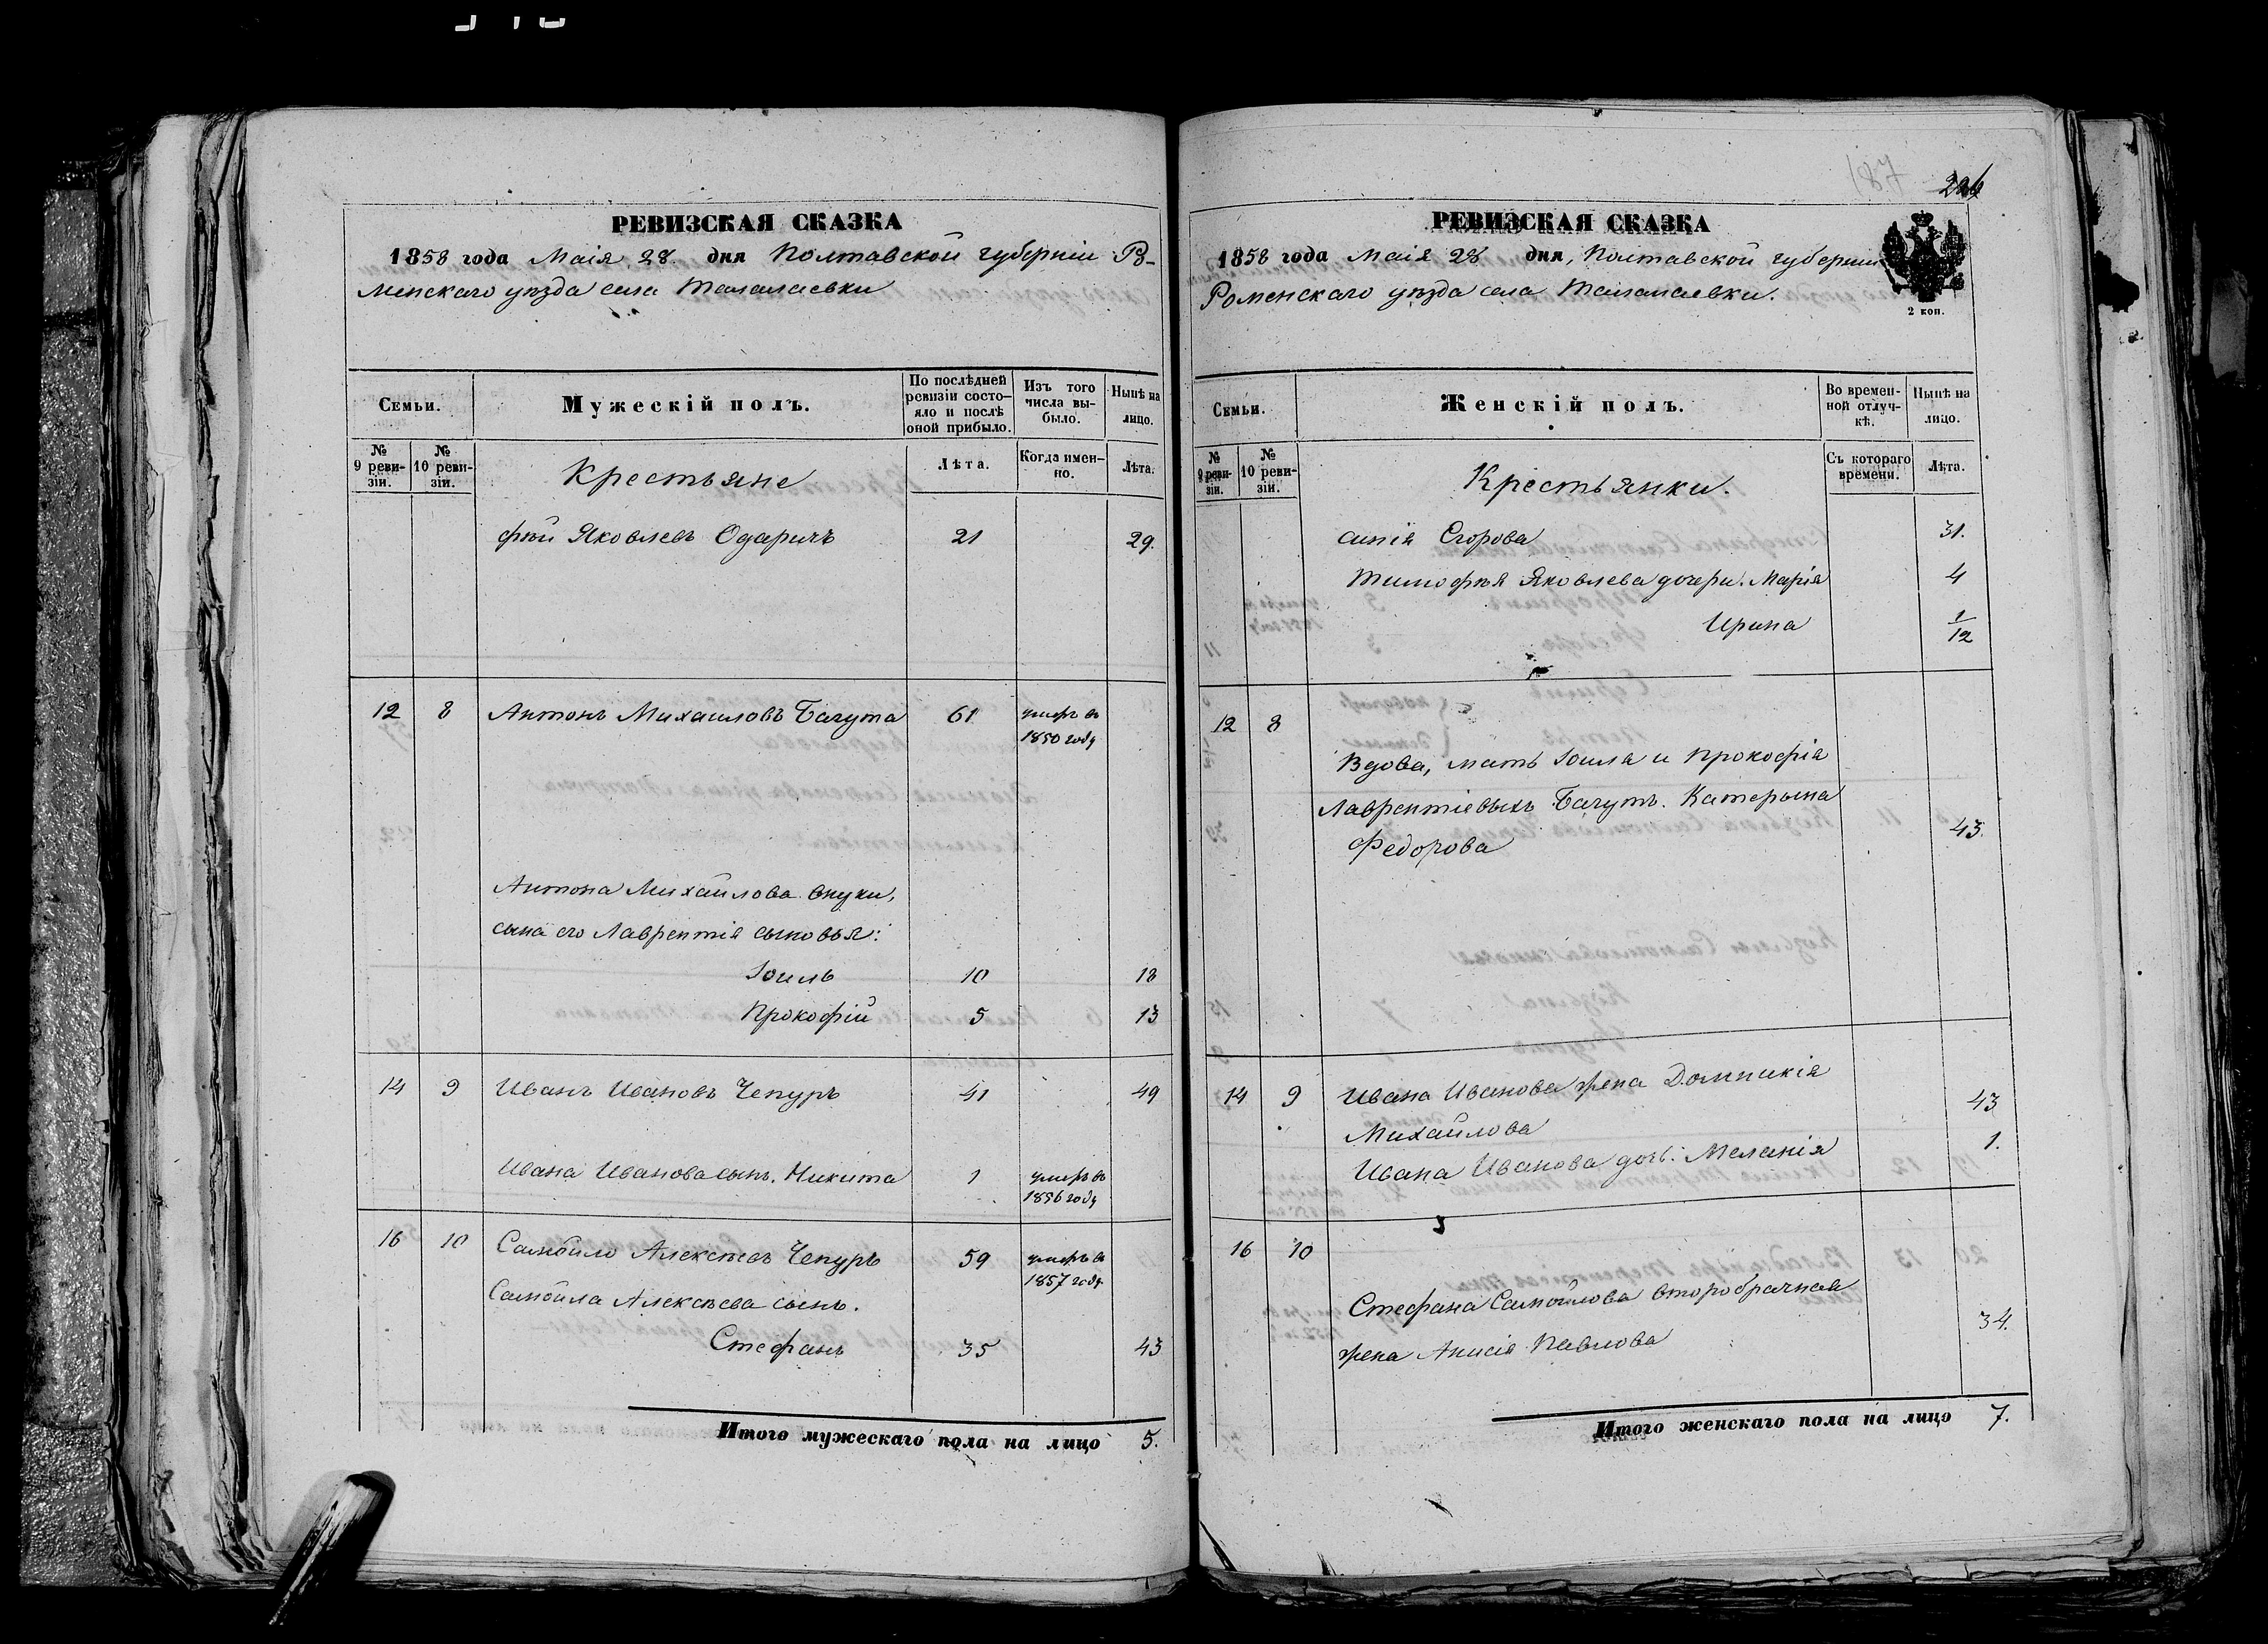 РЕВИЗСКАЯ СКАЗКА
1858 года Маія 28 дня Полтавской губерніи Ро-
менскаго уѣзда села Талалаевки
Семьи.
Мужескій полъ.
По послѣдней ревизіи состо-
яло и послѣ оной прибыло.
Изъ того числа вы-
было.
Нынѣ на лицо.
№ 9 реви-
зіи.
№ 10 реви-
зіи.
Крестьяне
Лѣта.
Когда имен-
но.
Лѣта.
фѣй Яковлевъ Одаричъ 21 29.
12 8 Антонъ Михаиловъ Бачута 61 умеръ въ
1850 году
Антона Михайлова внуки,
сына его Лаврентія сыновья:
Іоиль 10 18
Прокофій 5 13
14 9 Иванъ Ивановъ Чепуръ 41 49
Ивана Иванова сынъ. Никита 1 умеръ въ
1856 году
16 10 Самойло Алексѣевъ Чепуръ 59 умеръ въ
1857 году
Самойла Алексѣева сынъ.
Стефанъ 35 43
Итого мужескаго пола на лицо 5.
226
РЕВИЗСКАЯ СКАЗКА
1858 года Маія 28 дня, Полтавской губерніи
Роменскаго уѣзда села Талалаевки.
2 коп.
Семьи.
Женскій полъ.
Во времен-
ной отлуч-
кѣ.
Нынѣ на лицо.
№ 9 реви-
зіи.
№ 10 реви-
зіи.
Крестьянки.
Съ котораго времени.
Лѣта.
синія Егорова 31.
Тимофѣя Яковлева дочери. Марія 4
Ирина 1/12
12 8
Вдова, мать Іоиля и Прокофія
Лаврентіевыхъ Бачутъ. Катерына
Федорова 43.
14 9 Ивана Иванова жена Домникія
Михайлова 43
Ивана Иванова дочь. Меланія 1.
16 10
Стефана Самойлова второбрачная
жена Анисія Павлова 34.
Итого женскаго пола на лицо 7.